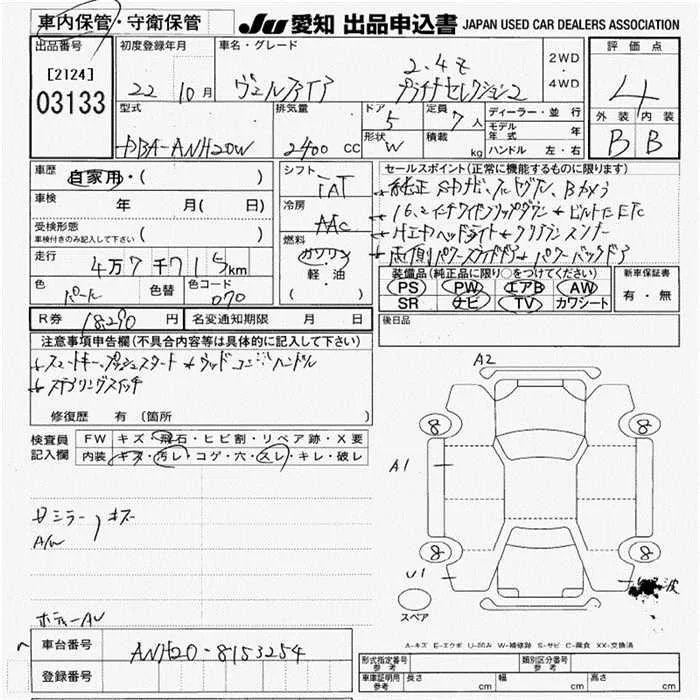 車内保管・守衛保管
JU 愛知 出品申込書 JAPAN USED CAR DEALERS ASSOCIATION
出品番号 初度登録年月 車名・グレード 2WD・4WD 評価点
[2124] 03133
22 10月 ヴェルファイア 2.4Z
プラチナセレクション2
4
型式 排気量 ドア 5 定員 7人 ディーラー・並行 外装 内装
DBA-ANH20W 2400 CC 形状 W 積載 kg モデル年式 年 B B
ハンドル 左・右
車歴 自家用・( )
シフト IAT
セールスポイント(正常に機能するものに限ります)
車検 年 月( 日)
冷房 AAC
受検形態 車検付きのみ記入して下さい ( )
走行 4万7千71 km
燃料 ガソリン 軽・油 ( )
色 パール 色替 色コード 070
装備品(純正品に限り○をつけてください) 新車保証書
PS PW エアB AW 有・無
SR ナビ TV カワシート
R券 18,290 円 名変通知期限 月 日
後日品
注意事項申告欄(不具合内容等は具体的に記入して下さい)
スマートキー、プッシュスタート ウッドコンビハンドル
ステアリングスイッチ
修復歴 有 (箇所
検査員記入欄 FW キズ・飛石・ヒビ割・リペア跡・X要
内装 キズ・汚レ・コゲ・穴・スレ・キレ・破レ
ミラー キズ
A/W
ボディーAU
A2
8 8
A1
8 8
U1 波
スペア
A-キズ E-エクボ U-凹み W-補修跡 S-サビ C-腐食 XX-交換済
車台番号 ANH20-8153254
登録番号
形式指定番号 参考 類別区分番号 参考
車庫証明用 参考 長さ cm 幅 cm 高さ cm